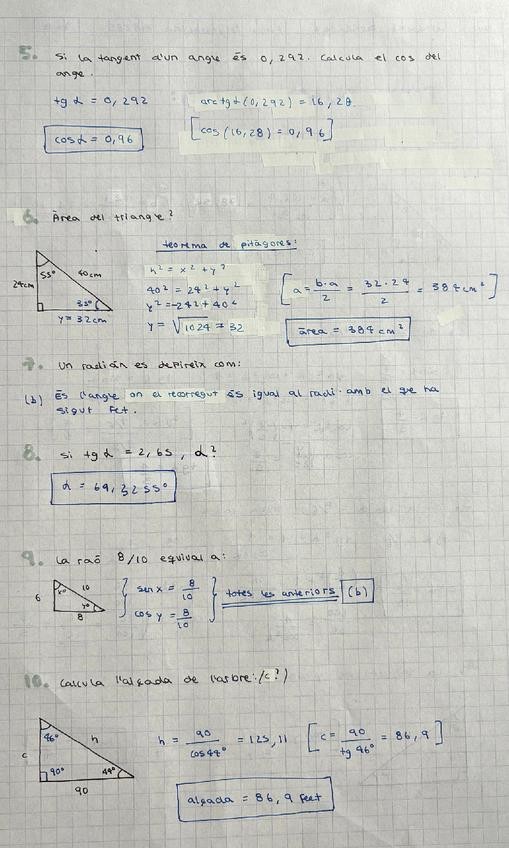 5. Si la tangent d'un angle és 0,292. Calcula el cos del
angle.
tg α = 0,292 arctgα(0,292) = 16,28
cosα = 0,96 [cos (16,28) = 0,96]
6. Àrea del triangle?
teorema de pitàgores:
55° 40cm 24cm 35° y = 32cm
h² = x² + y²
40² = 24² + y²
y² = -24² + 40²
y = √1024 = 32
[a = b·a/2 = 32·24/2 = 384 cm²]
àrea = 384 cm²
7. Un radián es defineix com:
(b) És l'angle on el recorregut és igual al radi amb el que ha
sigut fet.
8. si tg α = 2,65, α?
α = 69,3255°
9. La raó 8/10 equival a:
6 x° 10 y° 8
sen x = 8/10
cos y = 8/10
totes les anteriors (b)
10. Calcula l'alçada de l'arbre: (c?)
46° h c 90° 44° 90
h = 90/cos44° = 125,11 [c = 90/tg 46° = 86,9]
alçada = 86,9 feet